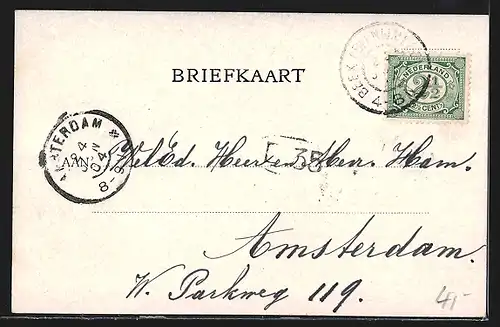 BRIEFKAART
NEDERLAND
2½
CENT
AMSTERDAM
4
04
8-9
AAN
WelEd. Heeren Herr. Ham.
38
Amsterdam.
W. Parkweg 119.
4,-